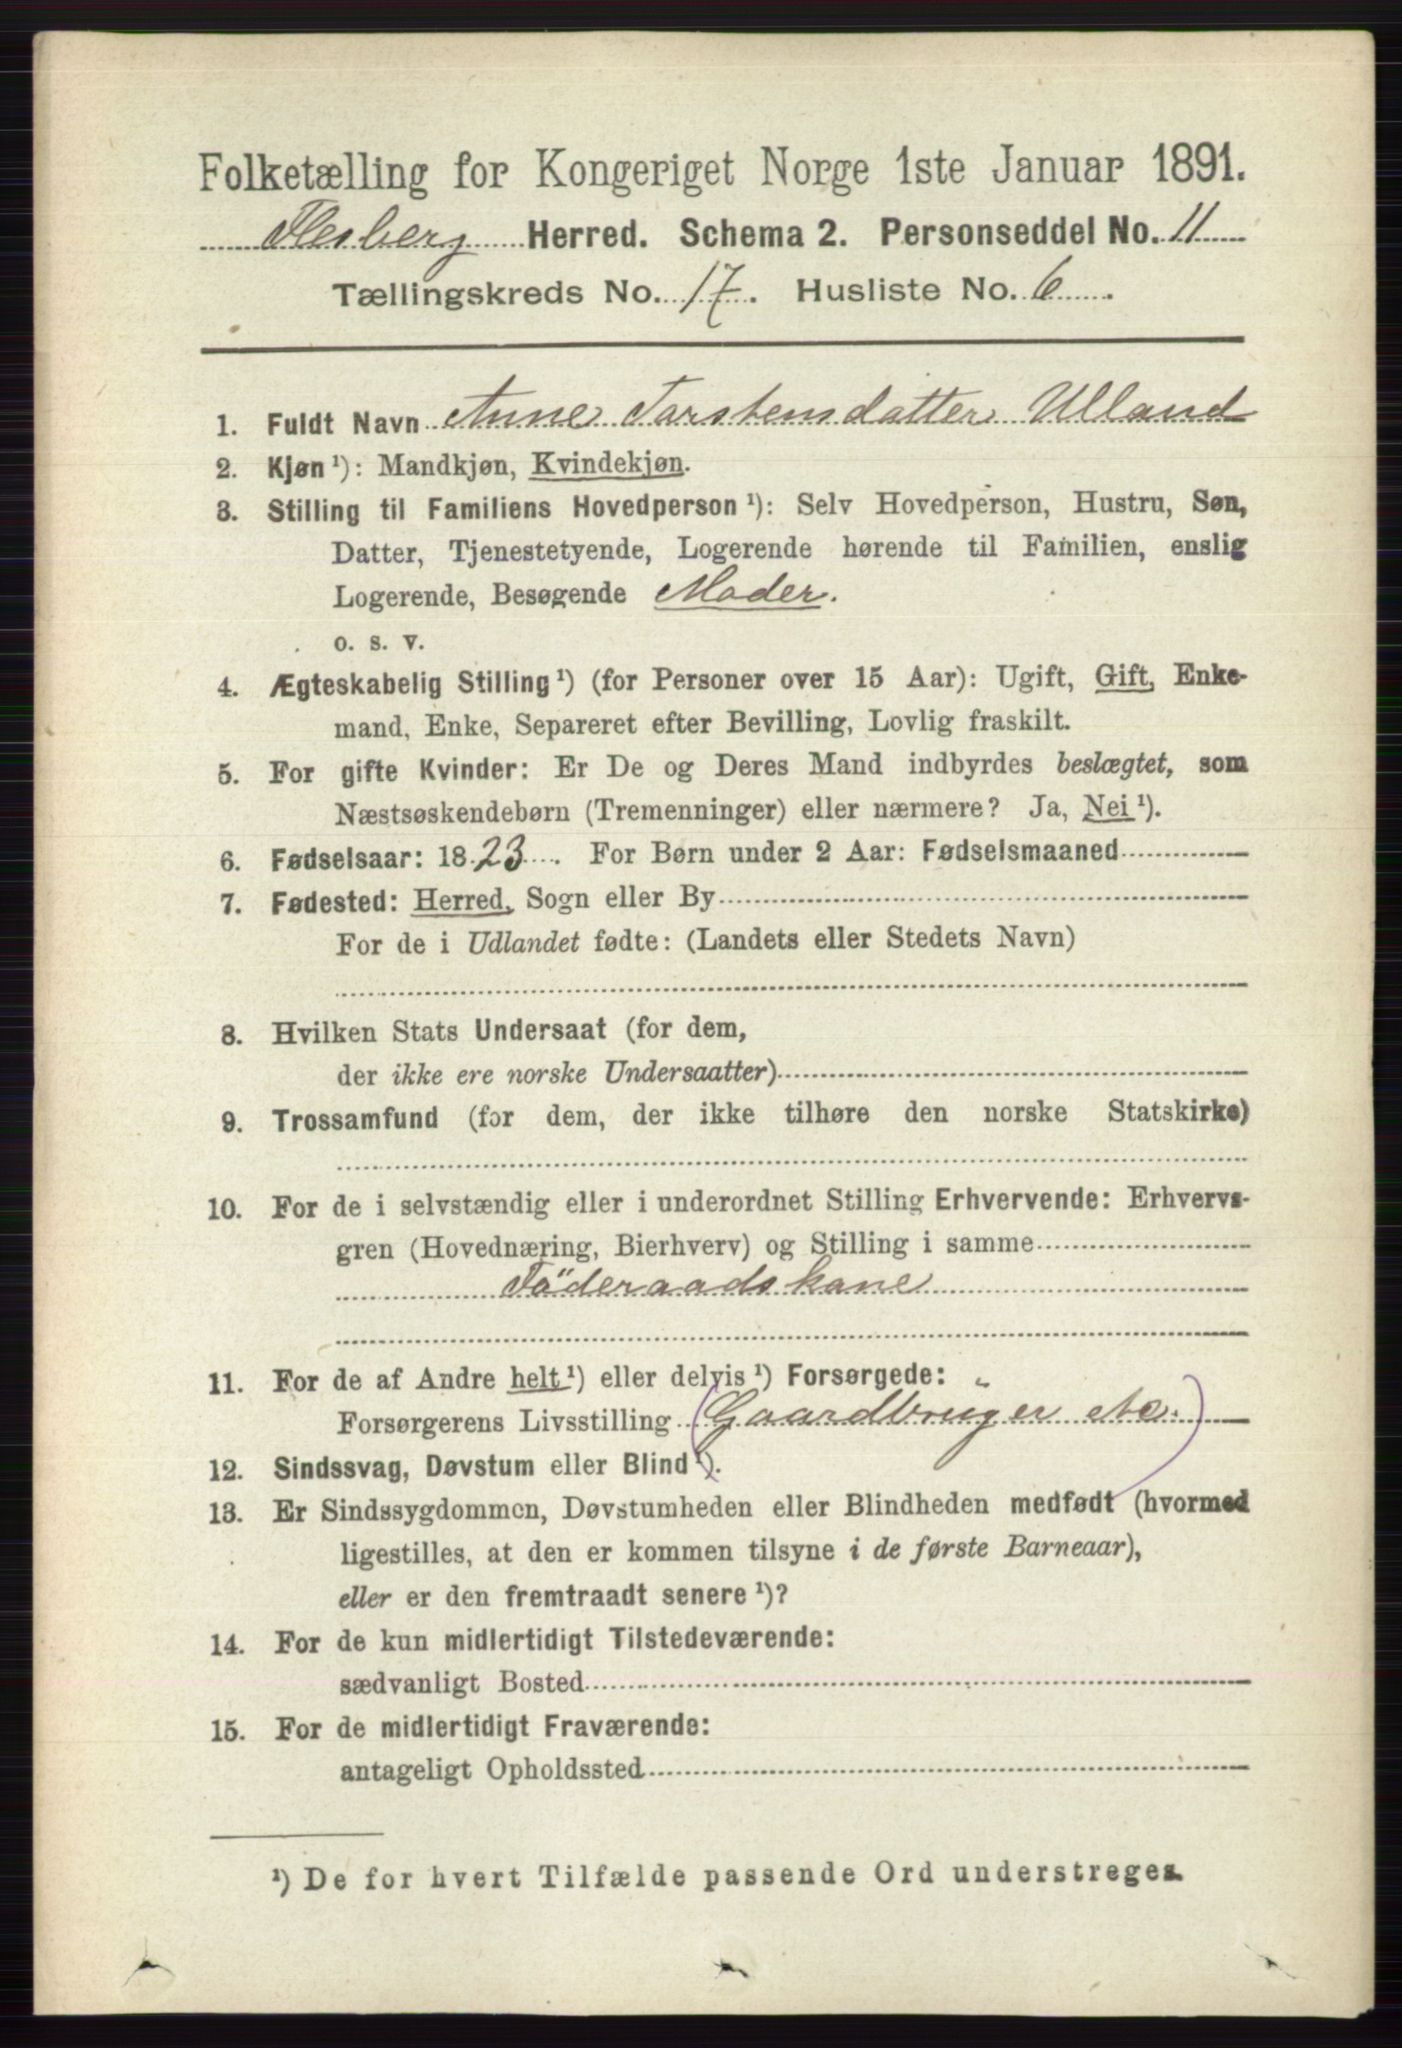 Folketælling for Kongeriget Norge 1ste Januar 1891.
Flesberg Herred. Schema 2. Personseddel No. 11
Tællingskreds No. 17. Husliste No. 6.
1. Fuldt Navn Anne Tarstensdatter Ulland
2. Kjøn ¹): Mandkjøn, Kvindekjøn.
3. Stilling til Familiens Hovedperson ¹): Selv Hovedperson, Hustru, Søn,
Datter, Tjenestetyende, Logerende hørende til Familien, enslig
Logerende, Besøgende Moder.
o. s. v.
4. Ægteskabelig Stilling ¹) (for Personer over 15 Aar): Ugift, Gift, Enke-
mand, Enke, Separeret efter Bevilling, Lovlig fraskilt.
5. For gifte Kvinder: Er De og Deres Mand indbyrdes beslægtet, som
Næstsøskendebørn (Tremenninger) eller nærmere? Ja, Nei ¹).
6. Fødselsaar: 1823. For Børn under 2 Aar: Fødselsmaaned
7. Fødested: Herred, Sogn eller By
For de i Udlandet fødte: (Landets eller Stedets Navn)
8. Hvilken Stats Undersaat (for dem,
der ikke ere norske Undersaatter)
9. Trossamfund (for dem, der ikke tilhøre den norske Statskirke)
10. For de i selvstændig eller i underordnet Stilling Erhvervende: Erhvervs-
gren (Hovednæring, Bierhverv) og Stilling i samme
Föderaadskane
11. For de af Andre helt ¹) eller delvis ¹) Forsørgede:
Forsørgerens Livsstilling (Gaardbruger)
12. Sindssvag, Døvstum eller Blind ¹).
13. Er Sindssygdommen, Døvstumheden eller Blindheden medfødt (hvormed
ligestilles, at den er kommen tilsyne i de første Barneaar),
eller er den fremtraadt senere ¹)?
14. For de kun midlertidigt Tilstedeværende:
sædvanligt Bosted
15. For de midlertidigt Fraværende:
antageligt Opholdssted
¹) De for hvert Tilfælde passende Ord understreges.